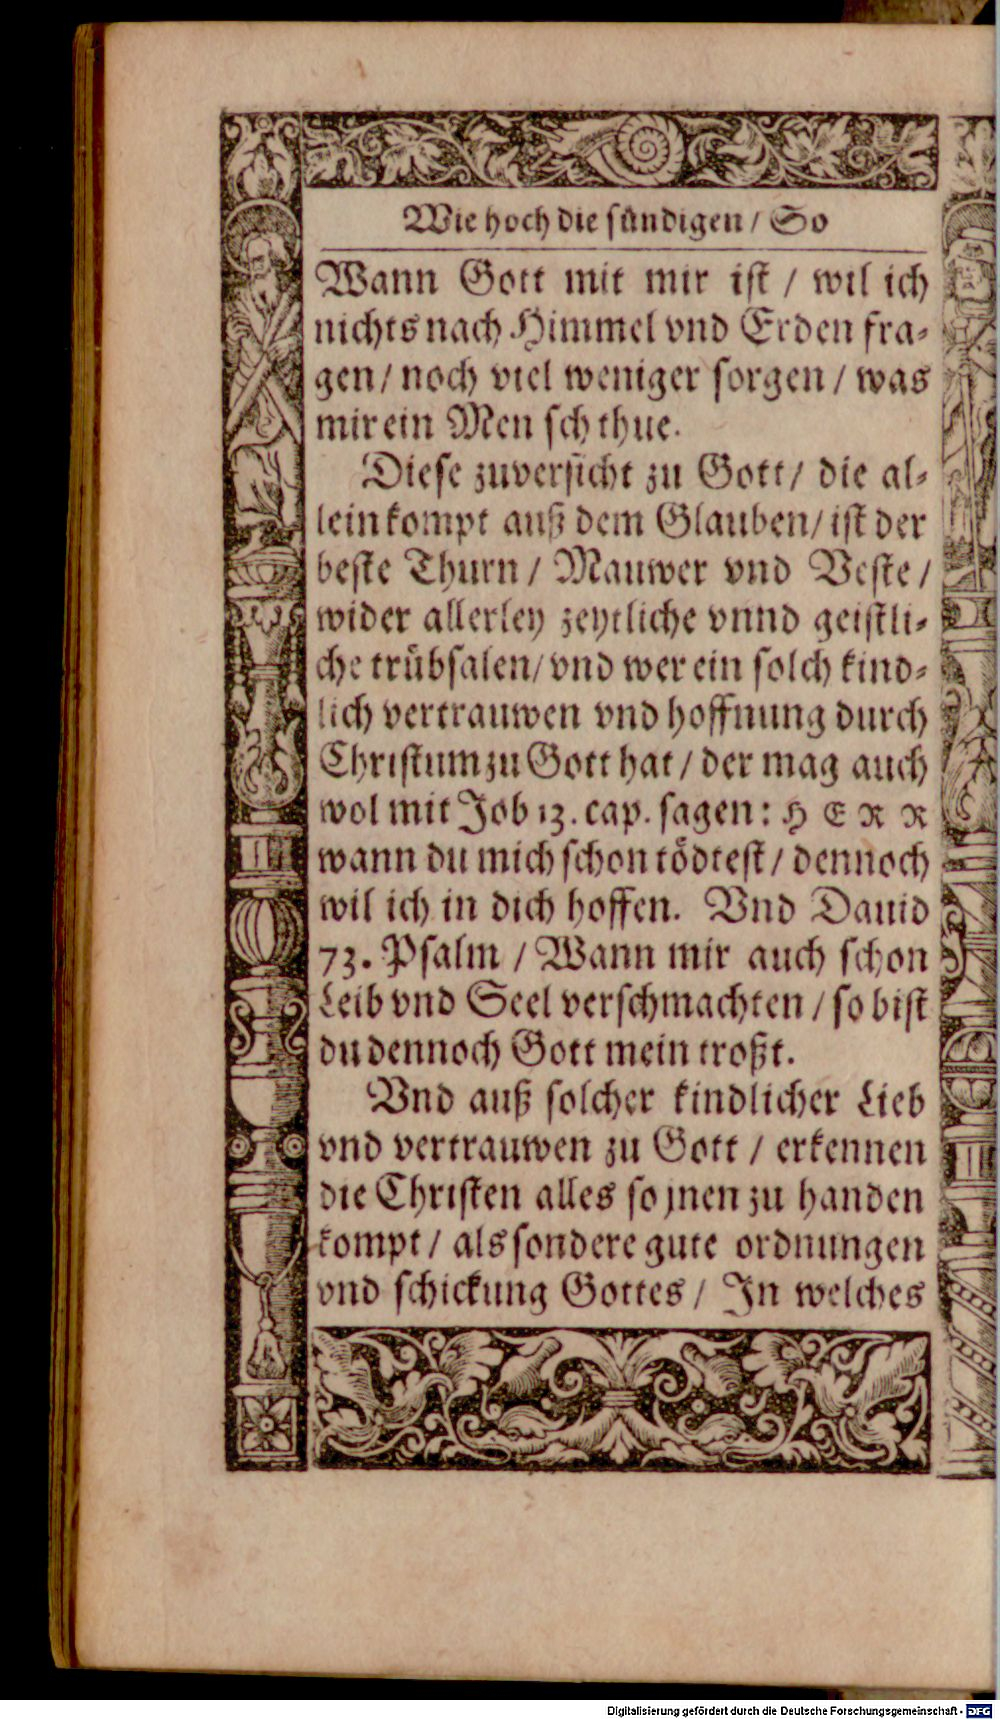 Wie hoch die sündigen / So
Wann Gott mit mir ist / wil ich
nichts nach Himmel vnd Erden fra-
gen / noch viel weniger sorgen / was
mir ein Men sch thue.
Diese zuversicht zu Gott / die al-
lein kompt auß dem Glauben / ist der
beste Thurn / Mauwer vnd Veste /
wider allerley zeytliche vnnd geistli-
che trübsalen / vnd wer ein solch kind-
lich vertrauwen vnd hoffnung durch
Christum zu Gott hat / der mag auch
wol mit Job 13. cap. sagen: H E R R
wann du mich schon tödtest / dennoch
wil ich in dich hoffen. Vnd Dauid
73. Psalm / Wann mir auch schon
Leib vnd Seel verschmachten / so bist
du dennoch Gott mein troßt.
Vnd auß solcher kindlicher Lieb
vnd vertrauwen zu Gott / erkennen
die Christen alles so jnen zu handen
kompt / als sondere gute ordnungen
vnd schickung Gottes / In welches
Digitalisierung gefördert durch die Deutsche Forschungsgemeinschaft - DFG